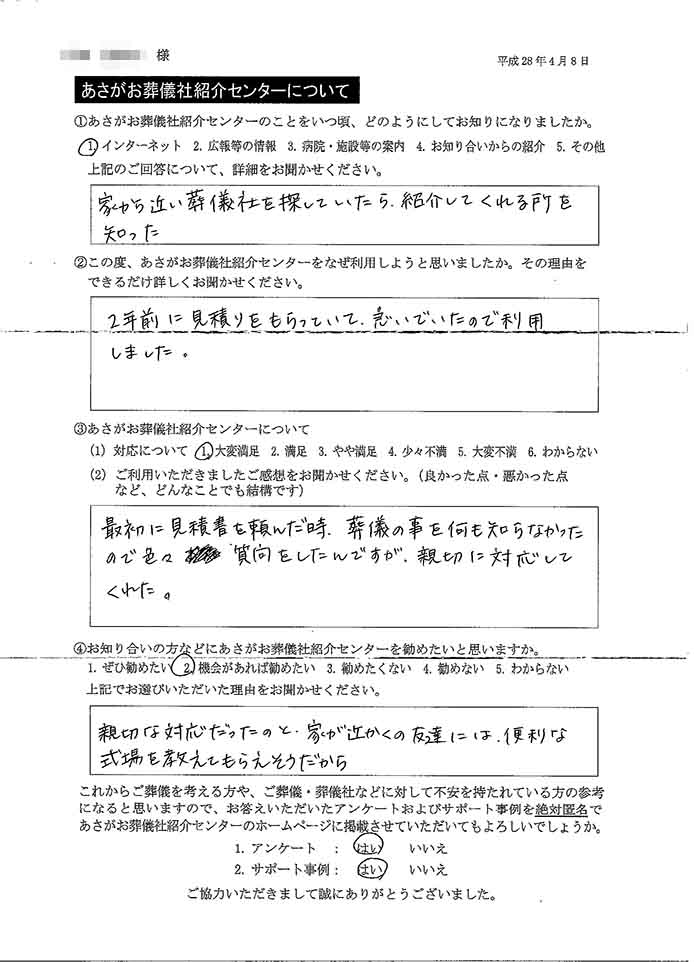 様
平成28年4月8日
あさがお葬儀社紹介センターについて
①あさがお葬儀社紹介センターのことをいつ頃、どのようにしてお知りになりましたか。
1. インターネット 2. 広報等の情報 3. 病院・施設等の案内 4. お知り合いからの紹介 5. その他
上記のご回答について、詳細をお聞かせください。
家から近い葬儀社を探していたら、紹介してくれる所を
知った
②この度、あさがお葬儀社紹介センターをなぜ利用しようと思いましたか。その理由を
できるだけ詳しくお聞かせください。
2年前に見積りをもらっていて、急いでいたので利用
しました。
③あさがお葬儀社紹介センターについて
(1) 対応について 1. 大変満足 2. 満足 3. やや満足 4. 少々不満 5. 大変不満 6. わからない
(2) ご利用いただきましたご感想をお聞かせください。(良かった点・悪かった点
など、どんなことでも結構です)
最初に見積書を頼んだ時、葬儀の事を何も知らなかった
ので色々 質問をしたんですが、親切に対応して
くれた。
④お知り合いの方などにあさがお葬儀社紹介センターを勧めたいと思いますか。
1. ぜひ勧めたい 2. 機会があれば勧めたい 3. 勧めたくない 4. 勧めない 5. わからない
上記でお選びいただいた理由をお聞かせください。
親切な対応だったのと、家が近かくの友達には、便利な
式場を教えてもらえそうだから
これからご葬儀を考える方や、ご葬儀・葬儀社などに対して不安を持たれている方の参考
になると思いますので、お答えいただいたアンケートおよびサポート事例を絶対匿名で
あさがお葬儀社紹介センターのホームページに掲載させていただいてもよろしいでしょうか。
1. アンケート : はい いいえ
2. サポート事例: はい いいえ
ご協力いただきまして誠にありがとうございました。